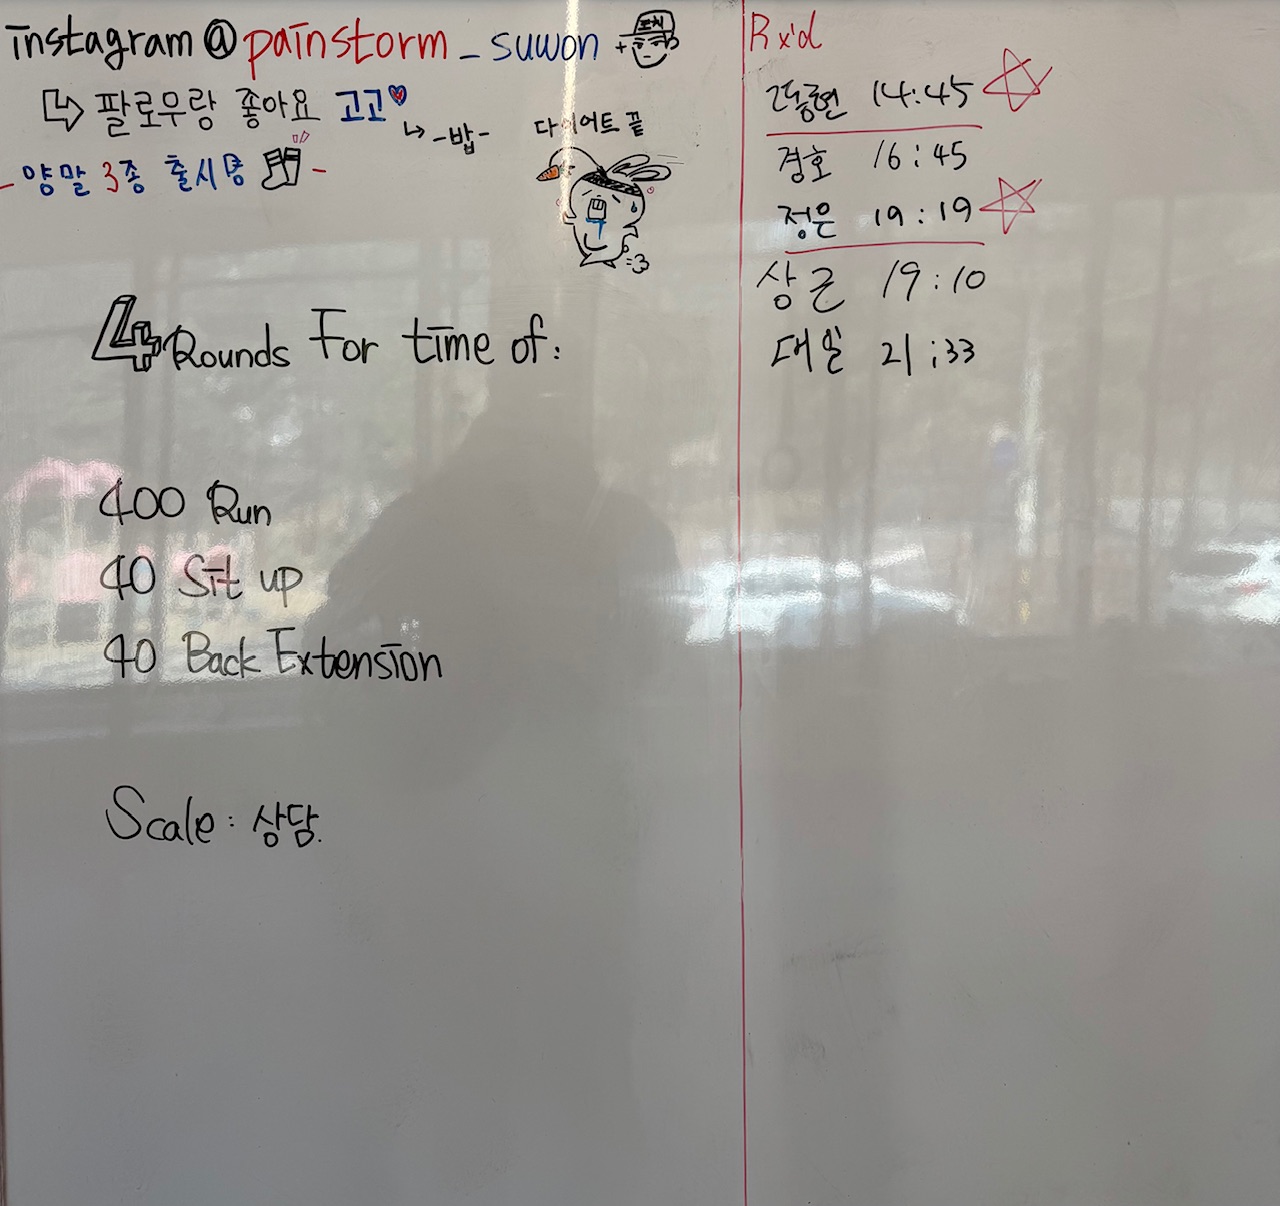 instagram @ painstorm_suwon
팔로우랑 좋아요 고고
-밥-
다이어트 끝
- 양말 3종 출시 -
4 Rounds For time of:
400 Run
40 Sit up
40 Back Extension
Scale: 상담.
Rx'd
14:45
경호 16:45
정은 19:19
상근 19:10
대일 21:33